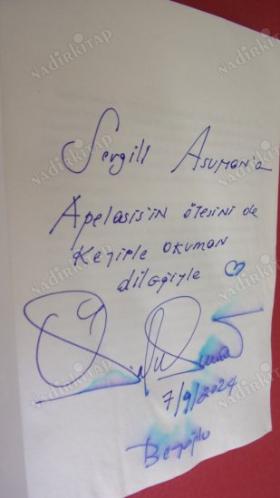 Sevgili Asuman'a
Apelasis'in ötesini de
Keyifle okuman
dileğiyle
7/9/2024
Beyoğlu
NADİRKİTAP